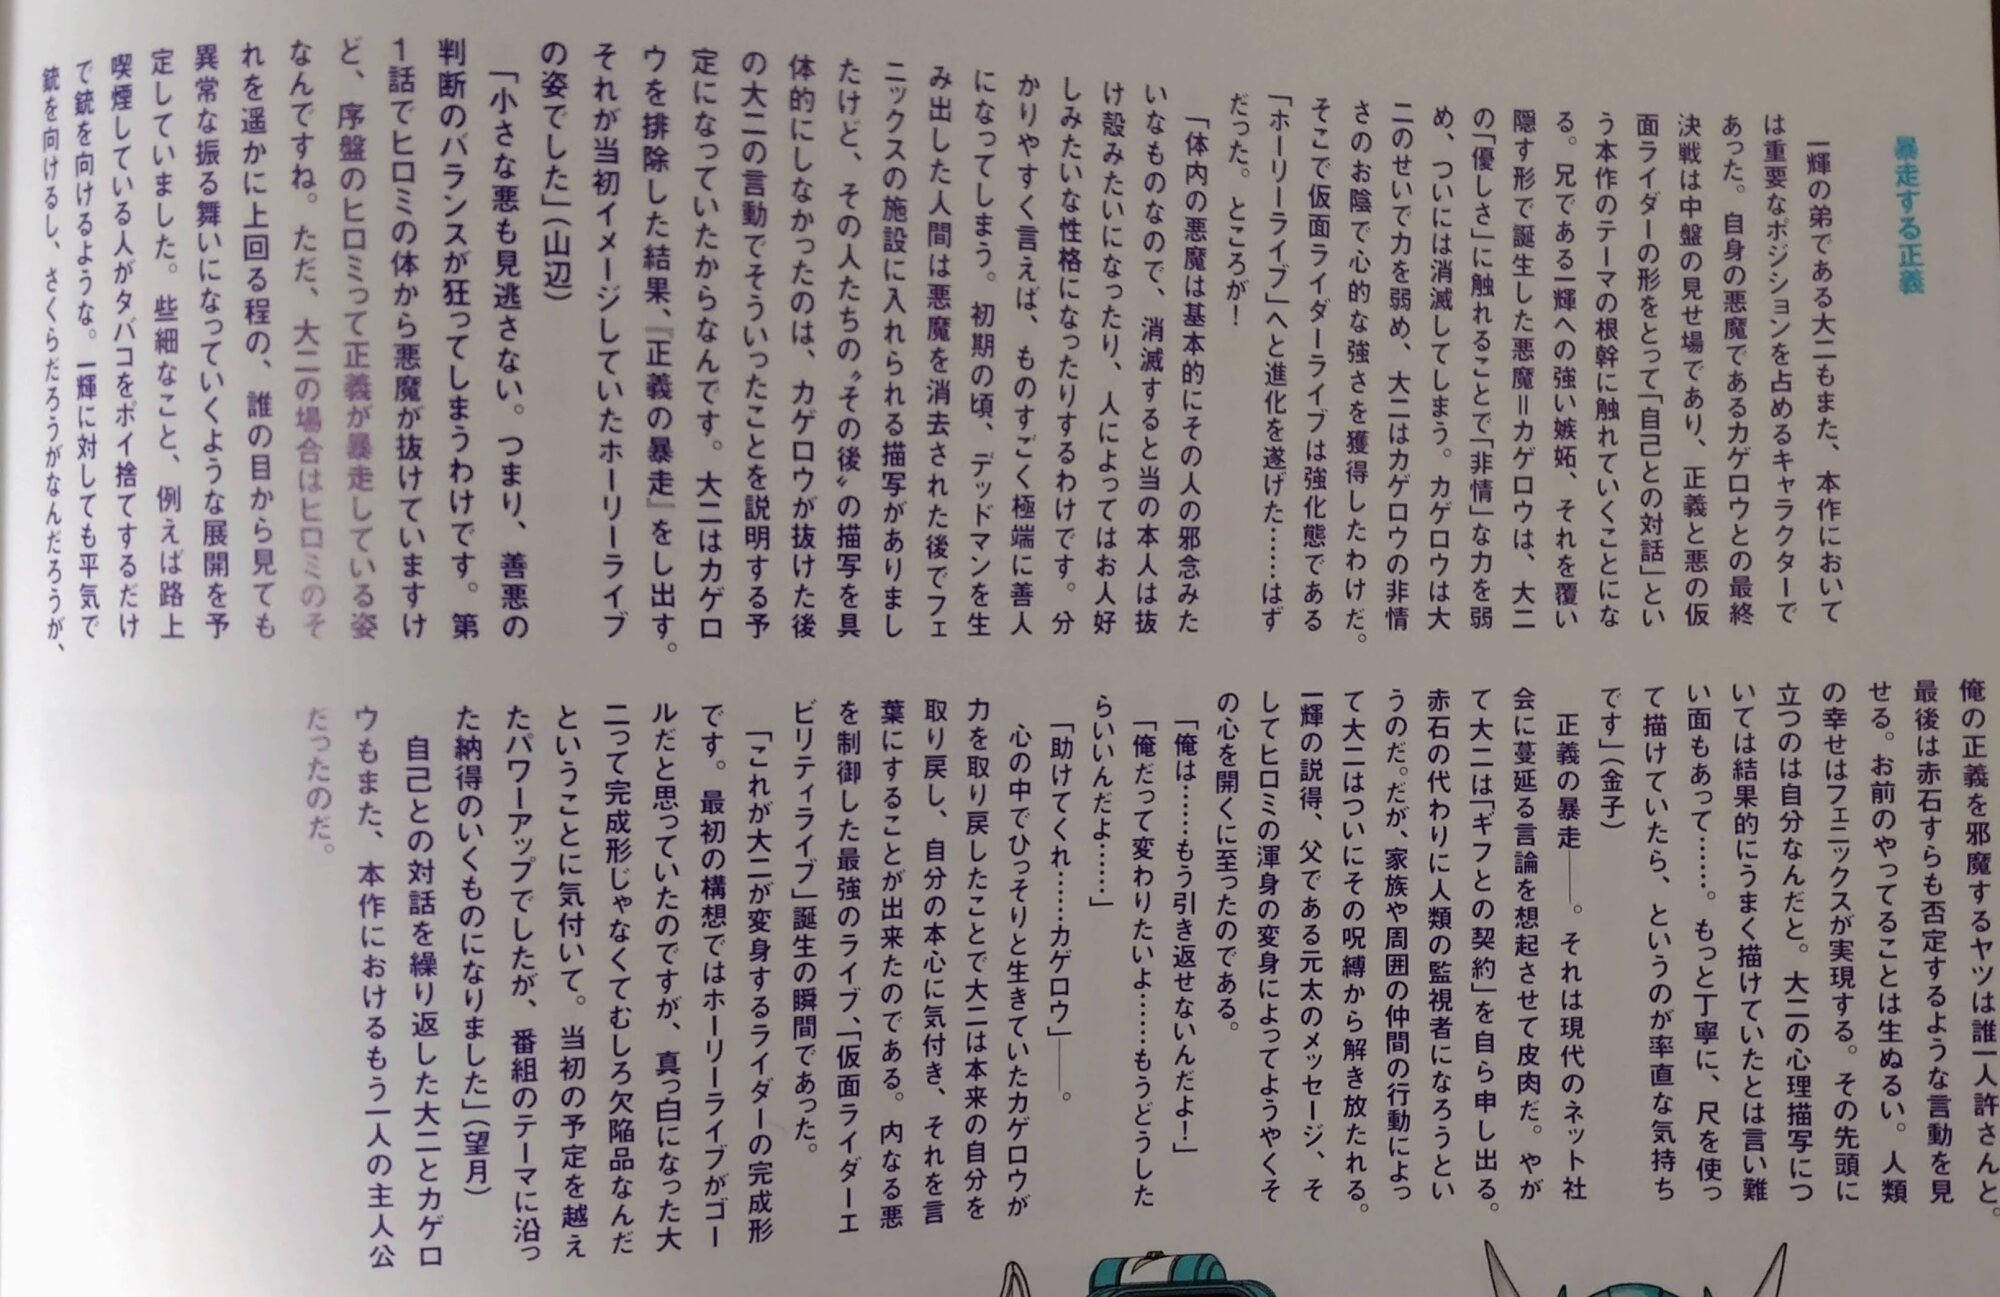 暴走する正義
一輝の弟である大二もまた、本作において
は重要なポジションを占めるキャラクターで
あった。自身の悪魔であるカゲロウとの最終
決戦は中盤の見せ場であり、正義と悪の仮
面ライダーの形をとって「自己との対話」とい
う本作のテーマの根幹に触れていくことにな
る。兄である一輝への強い嫉妬、それを覆い
隠す形で誕生した悪魔＝カゲロウは、大二
の「優しさ」に触れることで「非情」な力を弱
め、ついには消滅してしまう。カゲロウは大
二のせいで力を弱め、大二はカゲロウの非情
さのお陰で心的な強さを獲得したわけだ。
そこで仮面ライダーライブは強化態である
「ホーリーライブ」へと進化を遂げた……はず
だった。ところが！
「体内の悪魔は基本的にその人の邪念みた
いなものなので、消滅すると当の本人は抜
け殻みたいになったり、人によってはお人好
しみたいな性格になったりするわけです。分
かりやすく言えば、ものすごく極端に善人
になってしまう。初期の頃、デッドマンを生
み出した人間は悪魔を消去された後でフェ
ニックスの施設に入れられる描写がありまし
たけど、その人たちの〝その後〟の描写を具
体的にしなかったのは、カゲロウが抜けた後
の大二の言動でそういったことを説明する予
定になっていたからなんです。大二はカゲロ
ウを排除した結果、『正義の暴走』をし出す。
それが当初イメージしていたホーリーライブ
の姿でした」（山辺）
「小さな悪も見逃さない。つまり、善悪の
判断のバランスが狂ってしまうわけです。第
1話でヒロミの体から悪魔が抜けていますけ
ど、序盤のヒロミって正義が暴走している姿
なんですね。ただ、大二の場合はヒロミのそ
れを遥かに上回る程の、誰の目から見ても
異常な振る舞いになっていくような展開を予
定していました。些細なこと、例えば路上
喫煙している人がタバコをポイ捨てするだけ
で銃を向けるような。一輝に対しても平気で
銃を向けるし、さくらだろうがなんだろうが、
俺の正義を邪魔するヤツは誰一人許さんと。
最後は赤石すらも否定するような言動を見
せる。お前のやってることは生ぬるい。人類
の幸せはフェニックスが実現する。その先頭に
立つのは自分なんだと。大二の心理描写につ
いては結果的にうまく描けていたとは言い難
い面もあって……。もっと丁寧に、尺を使っ
て描けていたら、というのが率直な気持ち
です」（金子）
正義の暴走――。それは現代のネット社
会に蔓延る言論を想起させて皮肉だ。やが
て大二は「ギフとの契約」を自ら申し出る。
赤石の代わりに人類の監視者になろうとい
うのだ。だが、家族や周囲の仲間の行動によっ
て大二はついにその呪縛から解き放たれる。
一輝の説得、父である元太のメッセージ、そ
してヒロミの渾身の変身によってようやくそ
の心を開くに至ったのである。
「俺は……もう引き返せないんだよ！」
「俺だって変わりたいよ……もうどうした
らいいんだよ……」
「助けてくれ……カゲロウ」――。
心の中でひっそりと生きていたカゲロウが
力を取り戻したことで大二は本来の自分を
取り戻し、自分の本心に気付き、それを言
葉にすることが出来たのである。内なる悪
を制御した最強のライブ、「仮面ライダーエ
ビリティライブ」誕生の瞬間であった。
「これが大二が変身するライダーの完成形
です。最初の構想ではホーリーライブがゴー
ルだと思っていたのですが、真っ白になった大
二って完成形じゃなくてむしろ欠陥品なんだ
ということに気付いて。当初の予定を越え
たパワーアップでしたが、番組のテーマに沿っ
た納得のいくものになりました」（望月）
自己との対話を繰り返した大二とカゲロ
ウもまた、本作におけるもう一人の主人公
だったのだ。